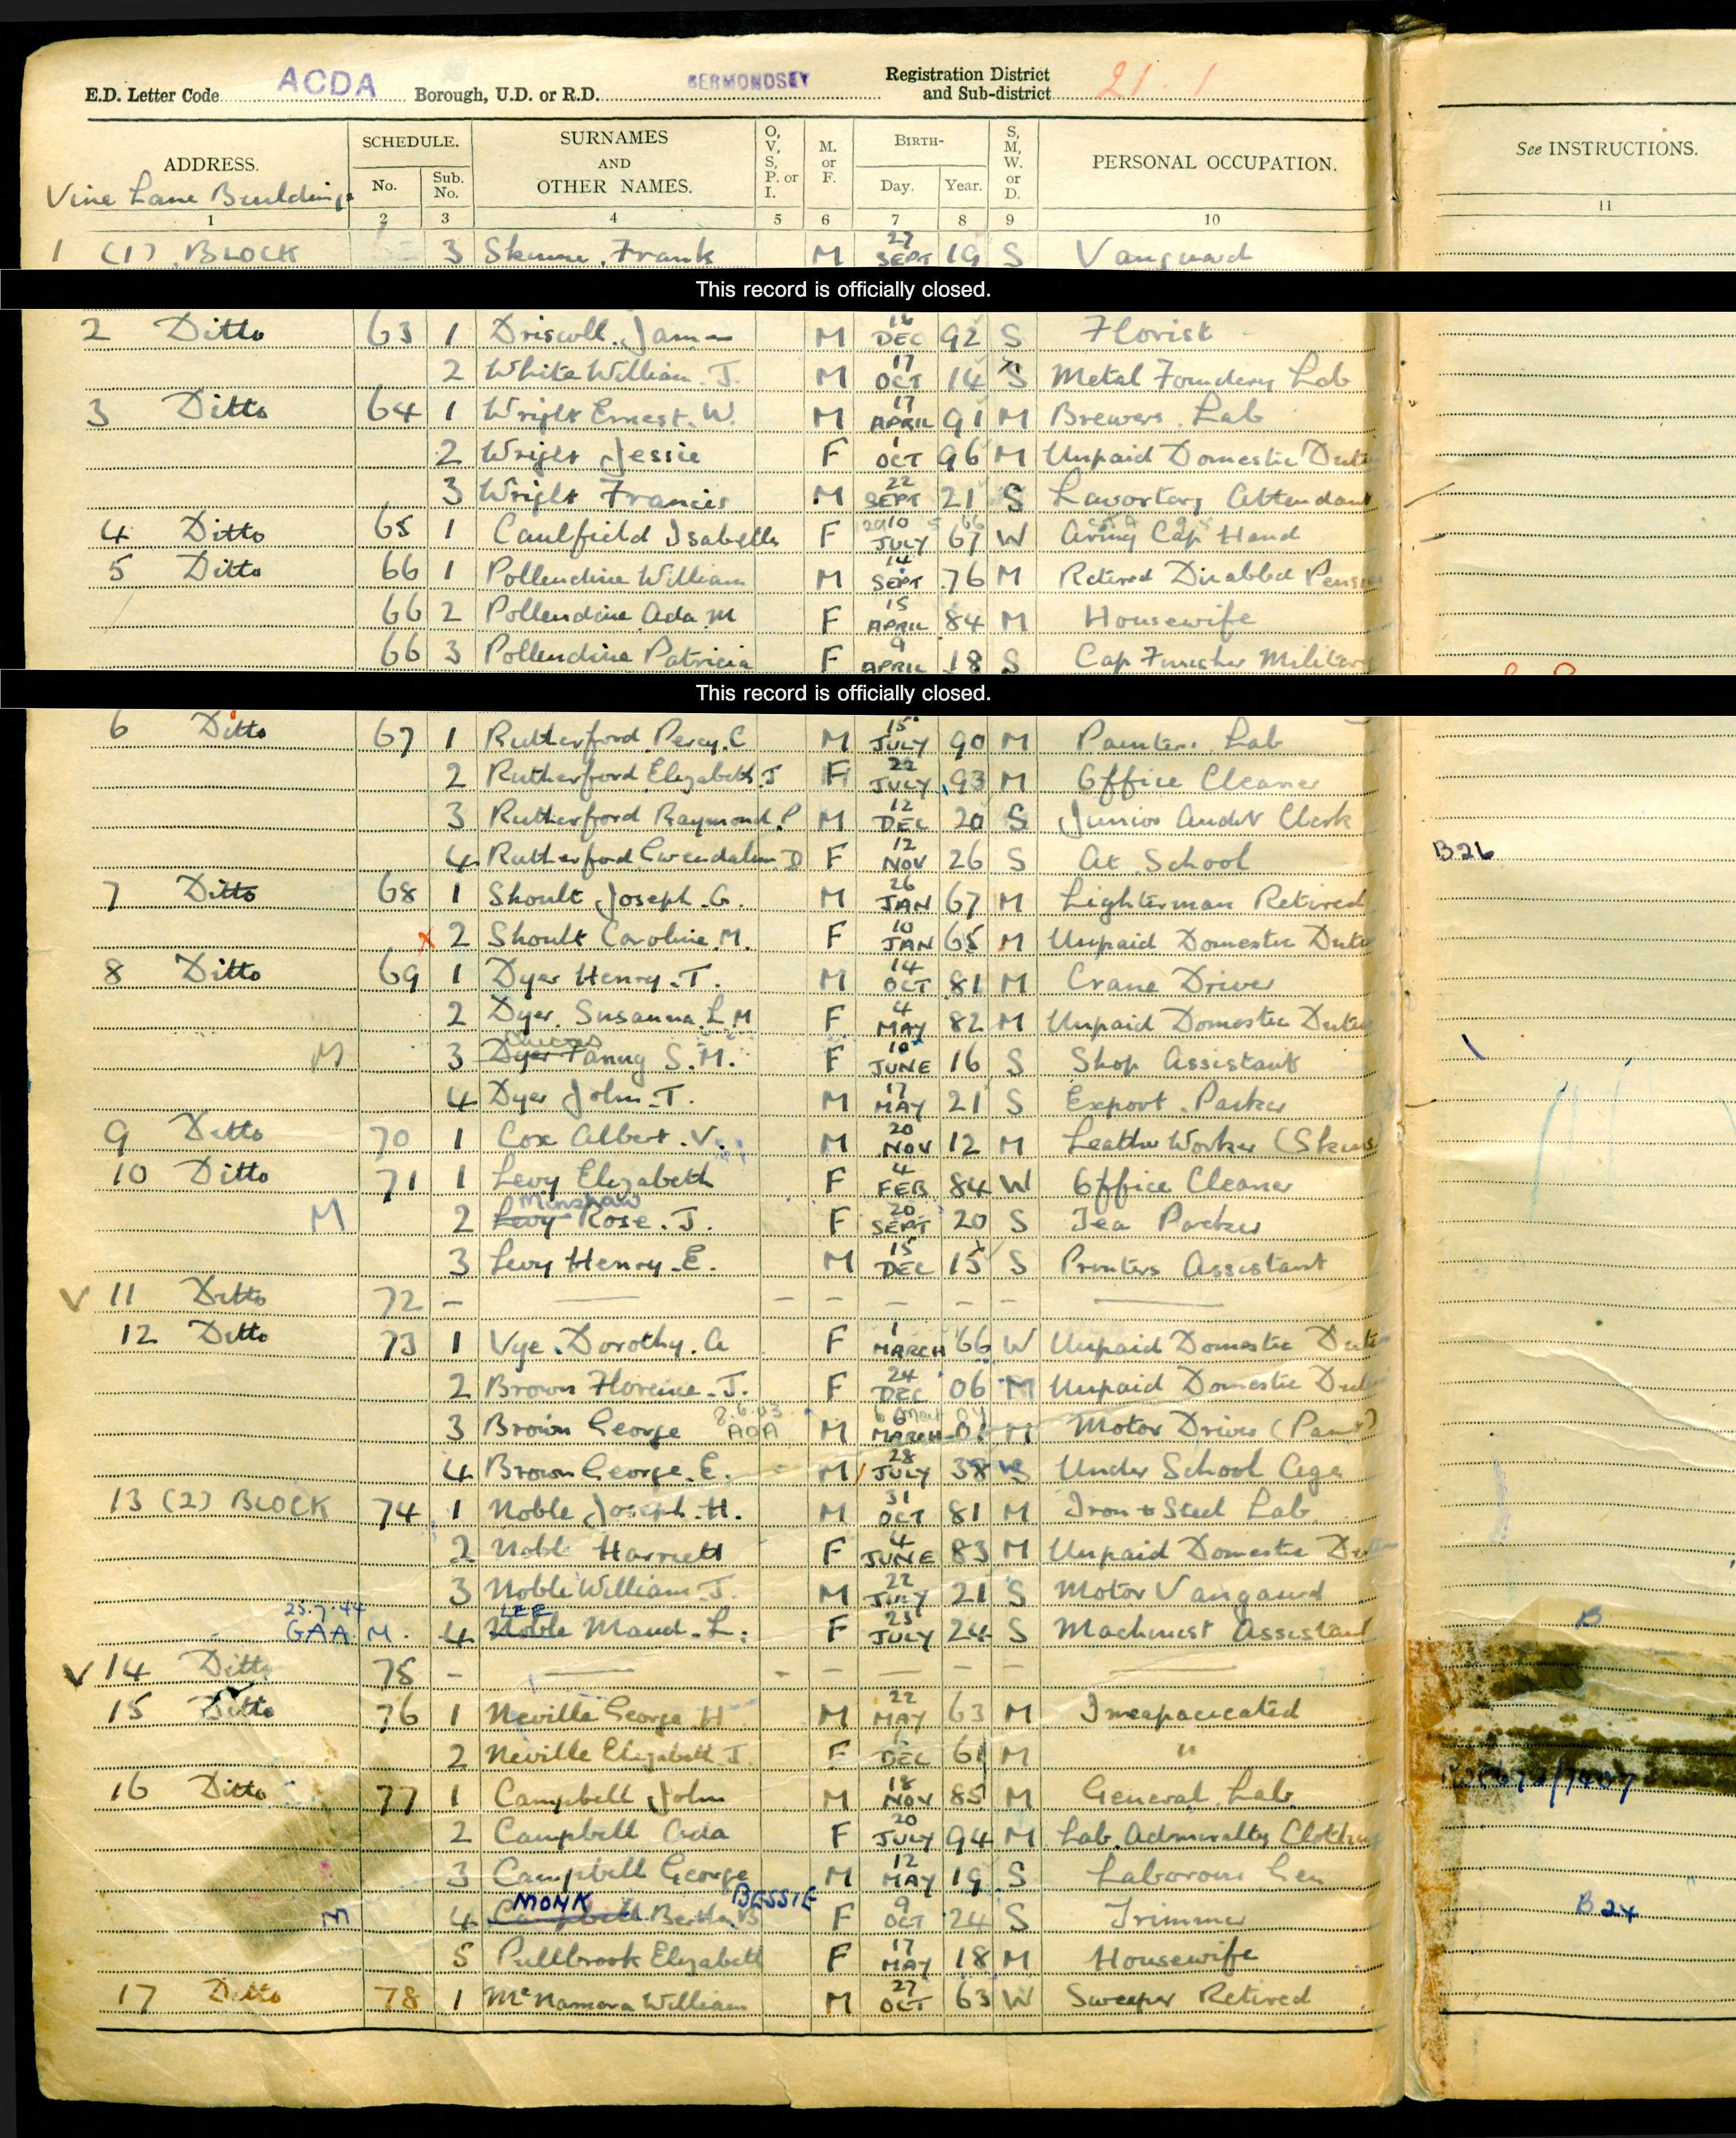 E.D. Letter Code ACDA Borough, U.D. or R.D. BERMONDSEY Registration District and Sub-district 21.1
ADDRESS. SCHEDULE. No. Sub. No. SURNAMES AND OTHER NAMES. O, V, S, P. or I. M. or F. BIRTH- Day. Year. S, M, W. or D. PERSONAL OCCUPATION. See INSTRUCTIONS.
Vine Lane Buildings
1 2 3 4 5 6 7 8 9 10 11
1 (1) BLOCK 3 Frank M 27 SEPT 19 S Vanguard
This record is officially closed.
2 Ditto 63 1 Driscoll James M DEC 92 S Florist
2 White William J. M 17 OCT 14 S Metal Foundery Lab
3 Ditto 64 1 Wright Ernest. W. M 17 APRIL 91 M Brewers Lab
2 Wright Jessie F 1 OCT 96 M Unpaid Domestic Duti
3 Wright Francis M 22 SEPT 21 S Lavortary Attendant
4 Ditto 65 1 Caulfield Isabella F 10 JULY 67 W Army Cap Hand
5 Ditto 66 1 Pollendine William M 14 SEPT 76 M Retired Disabled Pens
66 2 Pollendine Ada M F 15 APRIL 84 M Housewife
66 3 Pollendine Patricia F 9 APRIL 18 S Cap Finisher Military
This record is officially closed.
6 Ditto 67 1 Rutherford Percy. C M 15 JULY 90 M Painters Lab
2 Rutherford Elizabeth. J F 22 JULY 93 M Office Cleaner
3 Rutherford Raymond. P M 12 DEC 20 S Junior Audit Clerk
4 Rutherford Gwendaline. D F 12 NOV 26 S At School B26
7 Ditto 68 1 Shoult Joseph. G. M 26 JAN 67 M Lighterman Retired
X 2 Shoult Caroline. M. F 10 JAN 65 M Unpaid Domestic Dutie
8 Ditto 69 1 Dyer Henry. T. M 14 OCT 81 M Crane Driver
2 Dyer Susanna. L M F 4 MAY 82 M Unpaid Domestic Dutie
M 3 Dyer Fanny S. M. F 10 JUNE 16 S Shop Assistant
4 Dyer John. T. M 17 MAY 21 S Export. Packer
9 Ditto 70 1 Cox Albert. V. M 20 NOV 12 M Leather Worker (Skins)
10 Ditto 71 1 Levy Elizabeth F 4 FEB 84 W Office Cleaner
Minshaw
M 2 Levy Rose. J. F 20 SEPT 20 S Tea Packer
3 Levy Henry. E. M 15 DEC 15 S Printers Assistant
V 11 Ditto 72 - — - - — - - —
12 Ditto 73 1 Vye. Dorothy. A F 1 MARCH 66 W Unpaid Domestic Dutie
2 Brown Florence. J. F 24 DEC 06 M Unpaid Domestic Duti
3 Brown George 8.6.03 AOA M 6 MARCH M Motor Driver
4 Brown George. E. M 28 JULY 38 S Under School Age
13 (2) BLOCK 74 1 Noble Joseph. H. M 31 OCT 81 M Iron & Steel Lab
2 Noble Harriett F 4 JUNE 83 M Unpaid Domestic
3 Noble William. J. M 22 JULY 21 S Motor Vangaurd
25.7.44 LEE
GAA M. 4 Noble Maud. L. F 23 JULY 24 S Machinist Assistant B
V 14 Ditto 75 - — - - — - - —
15 Ditto 76 1 Neville George. H M 22 MAY 63 M Incapacicated
2 Neville Elizabeth. J. F 1 DEC 61 M "
16 Ditto 77 1 Campbell John M 18 NOV 85 M General Lab
2 Campbell Ada F 20 JULY 94 M Lab. Admiralty Clothing
3 Campbell George M 12 MAY 19 S Labourour Gen
MONK BESSIE
M 4 Campbell F 9 OCT 24 S Trimmer B24
5 Pullbrook Elizabeth F 17 MAY 18 M Housewife
17 Ditto 78 1 McNamara William M 27 OCT 63 W Sweeper Retired